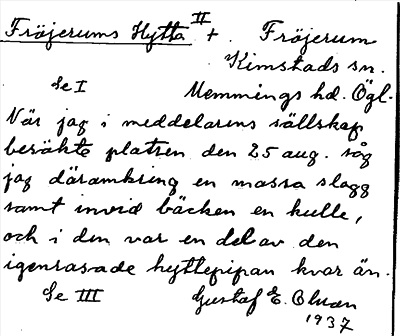 Fröjerums Hytta II +. Fröjerum
Kimstads sn.
Se I Memmings hd. Ögl.
När jag i meddelarens sällskap
besökte platsen den 25 aug. såg
jag däromkring en massa slagg
samt invid bäcken en kulle,
och i den var en del av den
igenrasade hyttepipan kvar än.
Se III Gustaf E. Olman
1937